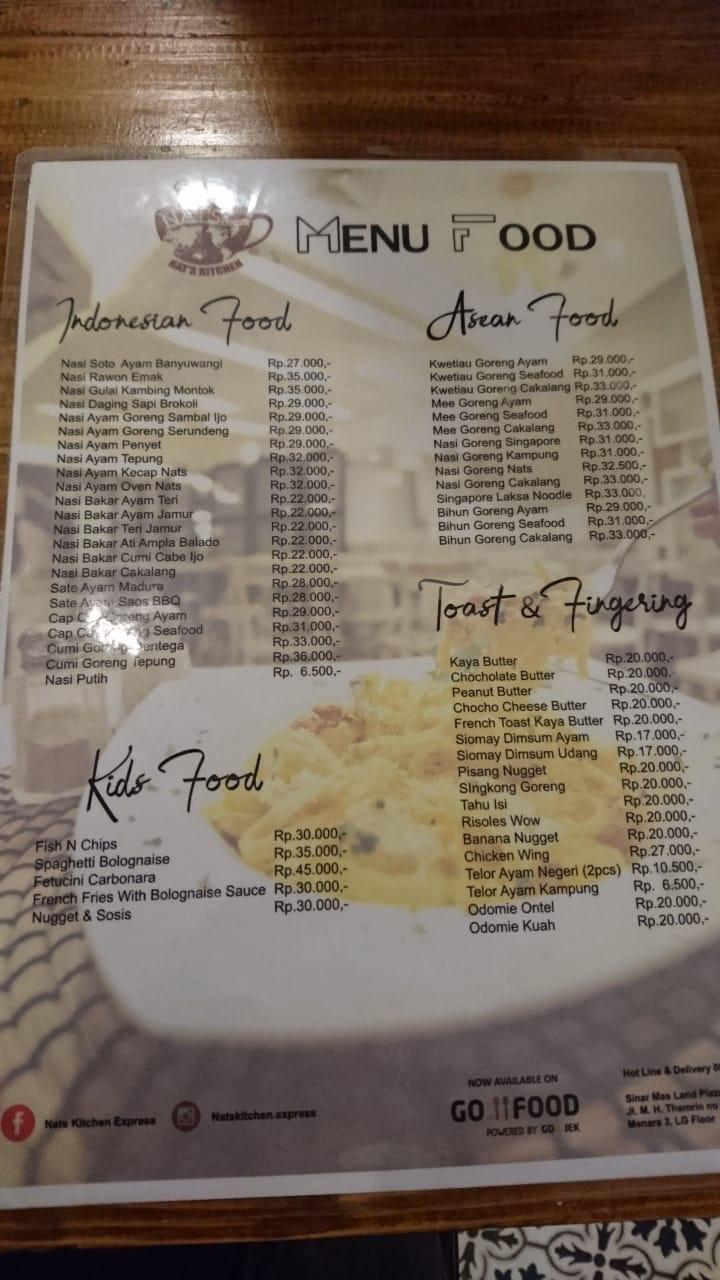 NATS
NAT'S KITCHEN
MENU FOOD
Indonesian Food
Nasi Soto Ayam Banyuwangi Rp.27.000,-
Nasi Rawon Emak Rp.35.000,-
Nasi Gulai Kambing Montok Rp.35.000,-
Nasi Daging Sapi Brokoli Rp.29.000,-
Nasi Ayam Goreng Sambal Ijo Rp.29.000,-
Nasi Ayam Goreng Serundeng Rp.29.000,-
Nasi Ayam Penyet Rp.29.000,-
Nasi Ayam Tepung Rp.32.000,-
Nasi Ayam Kecap Nats Rp.32.000,-
Nasi Ayam Oven Nats Rp.32.000,-
Nasi Bakar Ayam Teri Rp.22.000,-
Nasi Bakar Ayam Jamur Rp.22.000,-
Nasi Bakar Teri Jamur Rp.22.000,-
Nasi Bakar Ati Ampla Balado Rp.22.000,-
Nasi Bakar Cumi Cabe Ijo Rp.22.000,-
Nasi Bakar Cakalang Rp.22.000,-
Sate Ayam Madura Rp.28.000,-
Sate Ayam Saos BBQ Rp.28.000,-
Cap Goreng Ayam Rp.29.000,-
Cap Seafood Rp.31.000,-
Cumi Rp.33.000,-
Cumi Goreng Tepung Rp.36.000,-
Nasi Putih Rp. 6.500,-
Kids Food
Fish N Chips Rp.30.000,-
Spaghetti Bolognaise Rp.35.000,-
Fetucini Carbonara Rp.45.000,-
French Fries With Bolognaise Sauce Rp.30.000,-
Nugget & Sosis Rp.30.000,-
Asean Food
Kwetiau Goreng Ayam Rp.29.000,-
Kwetiau Goreng Seafood Rp.31.000,-
Kwetiau Goreng Cakalang Rp.33.000,-
Mee Goreng Ayam Rp.29.000,-
Mee Goreng Seafood Rp.31.000,-
Mee Goreng Cakalang Rp.33.000,-
Nasi Goreng Singapore Rp.31.000,-
Nasi Goreng Kampung Rp.31.000,-
Nasi Goreng Nats Rp.32.500,-
Nasi Goreng Cakalang Rp.33.000,-
Singapore Laksa Noodle Rp.33.000,
Bihun Goreng Ayam Rp.29.000,-
Bihun Goreng Seafood Rp.31.000,-
Bihun Goreng Cakalang Rp.33.000,-
Toast & Fingering
Kaya Butter Rp.20.000,-
Chocholate Butter Rp.20.000,-
Peanut Butter Rp.20.000,-
Chocho Cheese Butter Rp.20.000,-
French Toast Kaya Butter Rp.20.000,-
Siomay Dimsum Ayam Rp.17.000,-
Siomay Dimsum Udang Rp.17.000,-
Pisang Nugget Rp.20.000,-
SIngkong Goreng Rp.20.000,-
Tahu Isi Rp.20.000,-
Risoles Wow Rp.20.000,-
Banana Nugget Rp.20.000,-
Chicken Wing Rp.27.000,-
Telor Ayam Negeri (2pcs) Rp.10.500,-
Telor Ayam Kampung Rp. 6.500,-
Odomie Ontel Rp.20.000,-
Odomie Kuah Rp.20.000,-
Nats Kitchen Express
Natskitchen.express
NOW AVAILABLE ON
GO FOOD
POWERED BY GO JEK
Hot Line & Delivery
Sinar Mas Land Plaza
Jl. M. H. Thamrin no
Menara 3, LG Floor